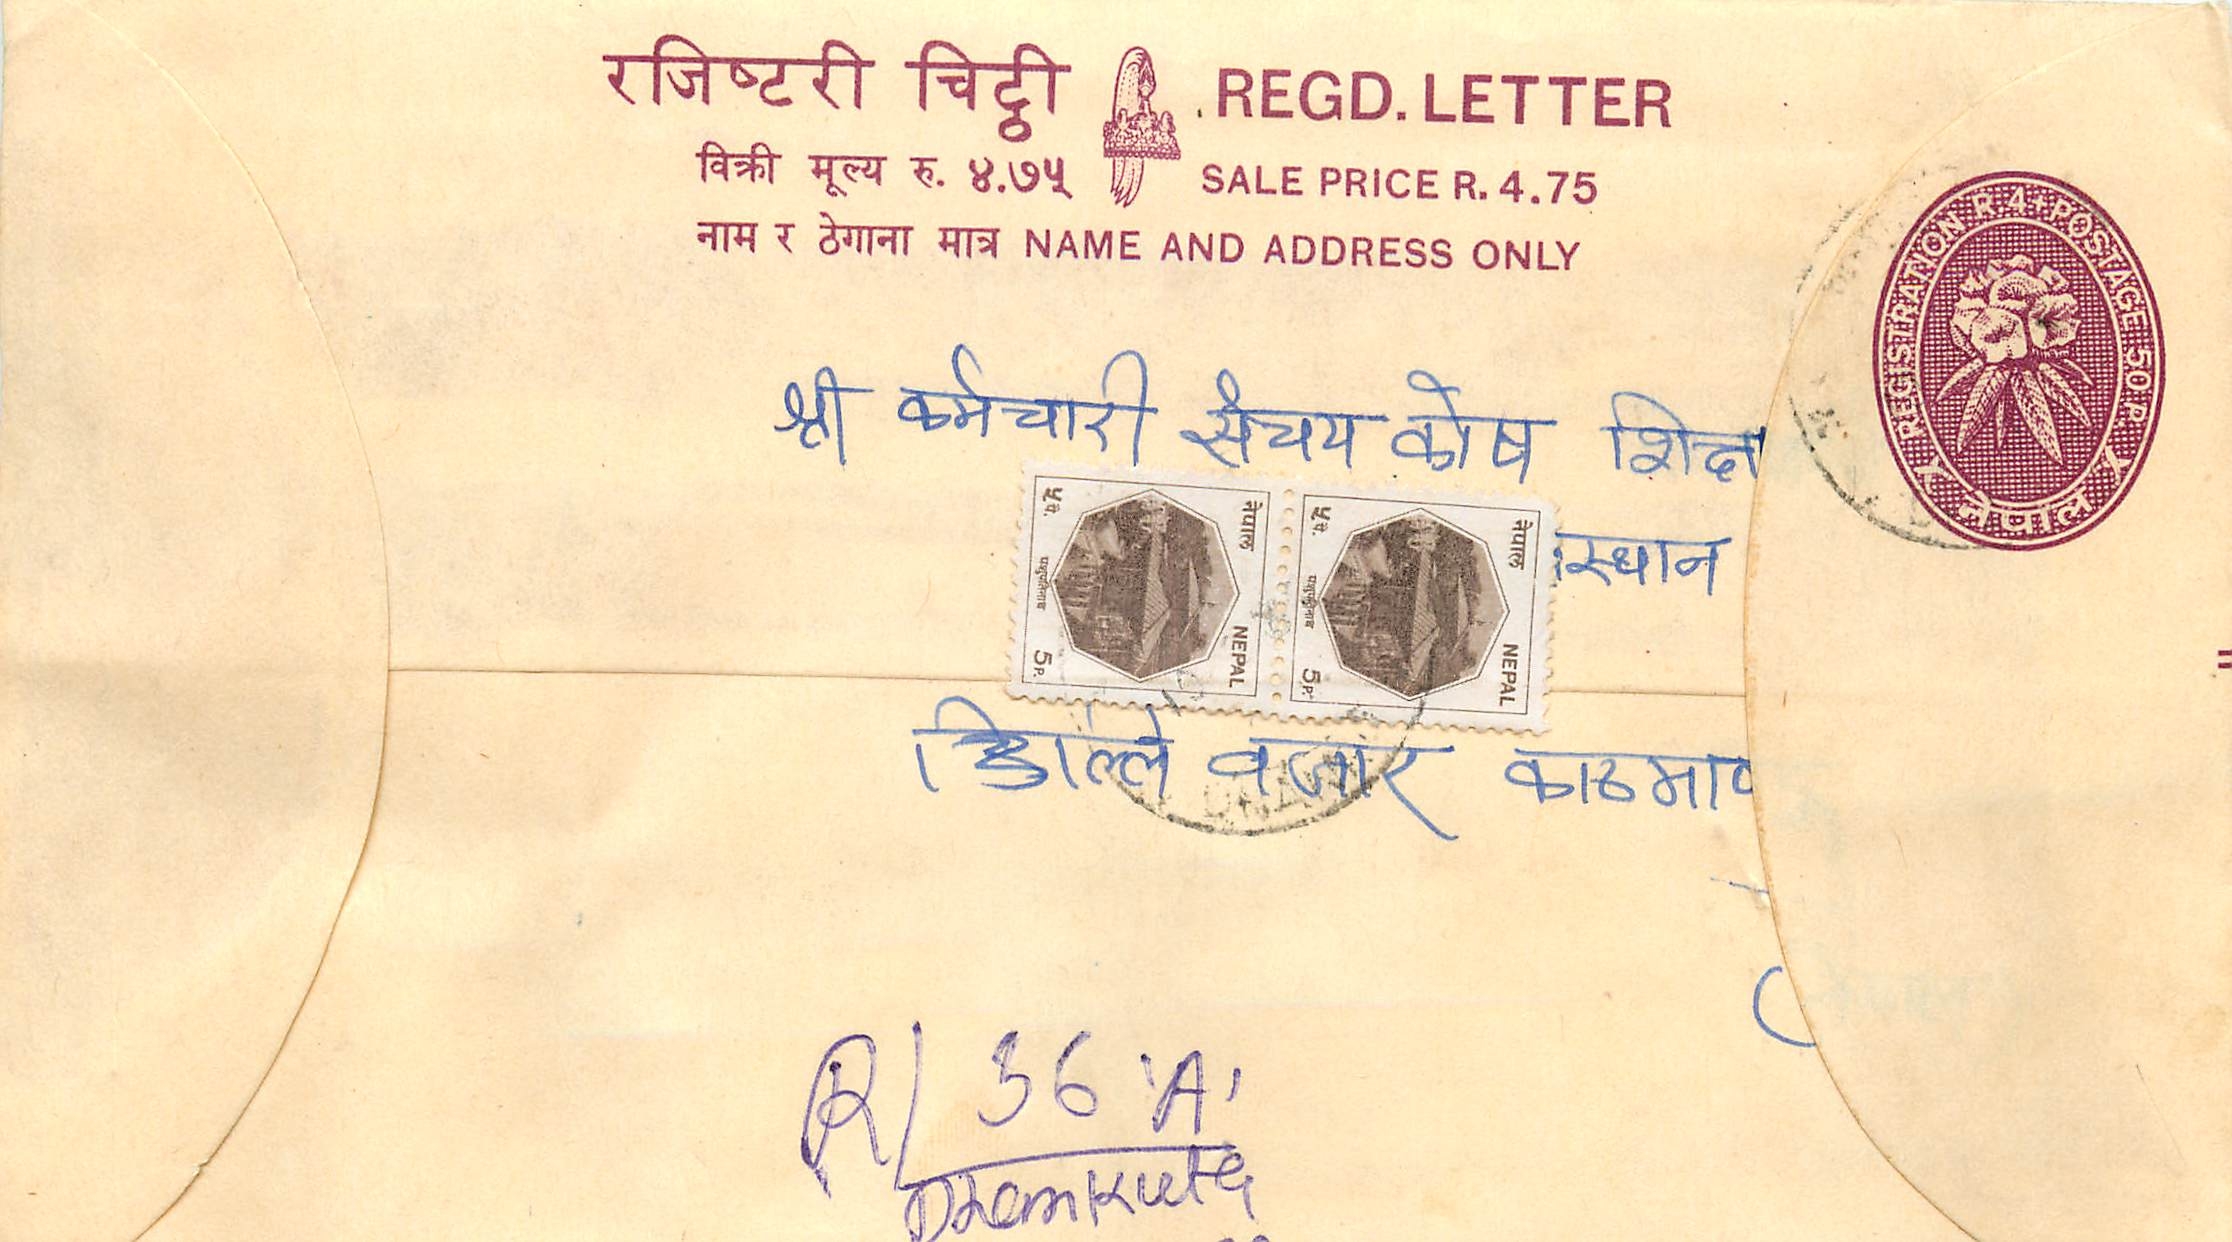 रजिष्टरी चिट्ठी REGD. LETTER
विक्री मूल्य रु. ४.७५ SALE PRICE R. 4.75
नाम र ठेगाना मात्र NAME AND ADDRESS ONLY
REGISTRATION R. 4+POSTAGE 50 P.
नेपाल
श्री कर्मचारी संचय कोष
स्थान
नेपाल NEPAL
५ पै. पशुपतिनाथ 5 P.
नेपाल NEPAL
५ पै. पशुपतिनाथ 5 P.
डिल्ली वजार
R/ 36 'A'
Dhankuta